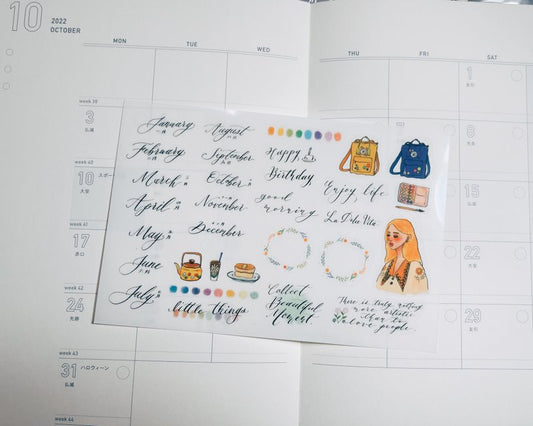 10
2022
OCTOBER
MON
TUE
WED
THU
FRI
SAT
week 39
week 40
week 43
week 44
1
友引
3
仏滅
10
大安
スポー
15
17
赤口
22
24
先勝
29
31
仏滅
ハロウィーン
January
一月
February
二月
March
三月
April
四月
May
五月
June
六月
July
七月
August
八月
September
九月
October
十月
November
December
Happy
Birthday,
good
morning
Enjoy life
La Dolce Vita
little things
Collect
Beautiful
Moment.
There is truly nothing
more artistic
than to
love people.